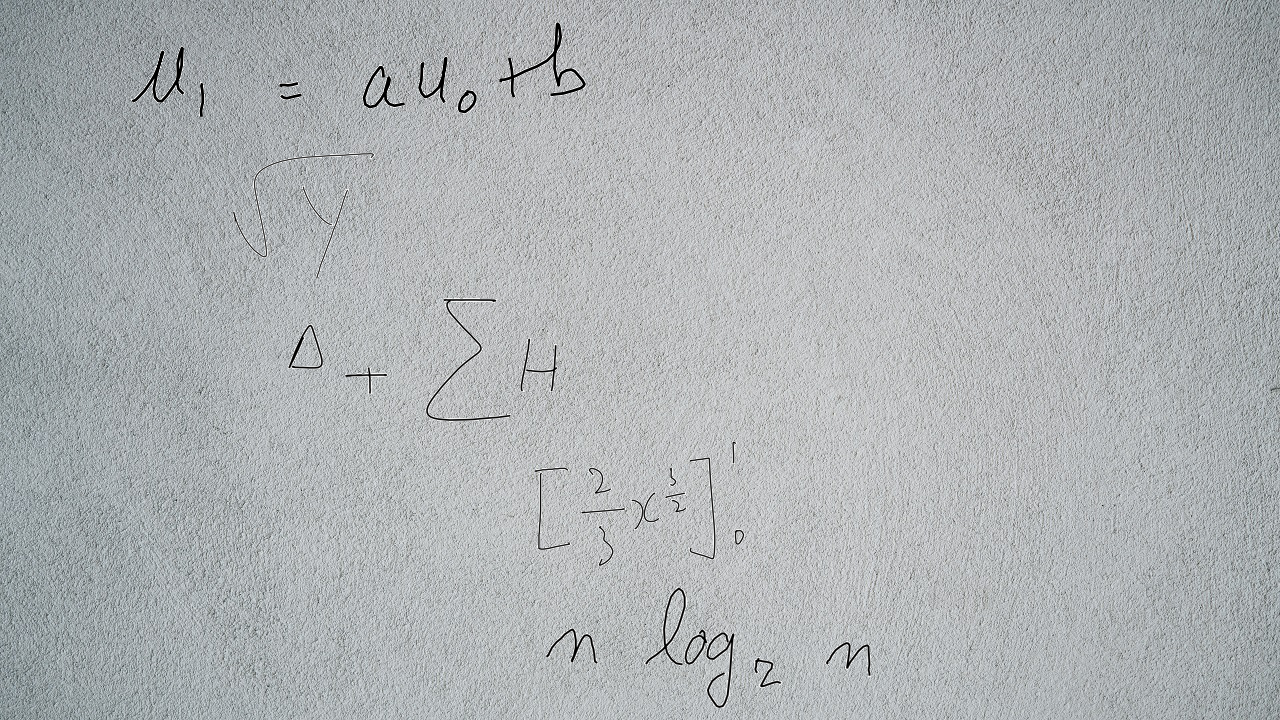 u₁ = au₀ + b
√y
Δ + ∑ H
[ 2/3 x^{3/2} ]₀¹
n log₂ n